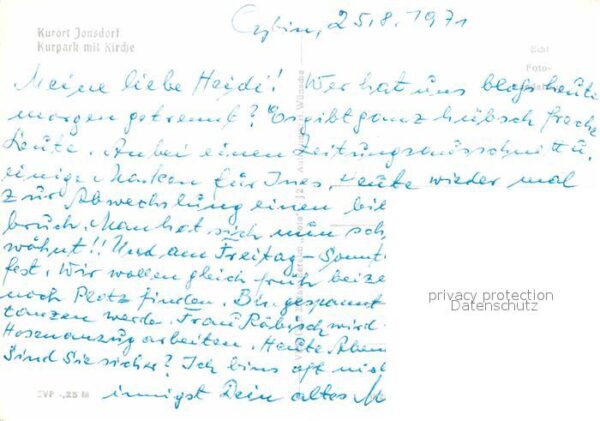 Kurort Jonsdorf
Kurpark mit Kirche
Oybin, 25.8.1971
Echt
Foto
Meine liebe Heidi! Wer hat uns bloß heute
morgen getrennt? Es gibt ganz hübsch freche
Leute. Anbei einen Zeitungsausschnitt u.
einige Marken für Ines, heute wieder mal
zur Abwechslung einen
bruch. Man hat sich nun sch
wöhnt!! Und am Freitag - Sonnt
fest. Wir wollen gleich früh beize
noch Platz finden. Bin gespannt
tanzen werde. Frau Räbisch wird
Hosenanzug arbeiten. Heute Aben
Sind Sie sicher? Ich bins oft nich
innigst Dein altes M
EVP -,25 M
privacy protection
Datenschutz